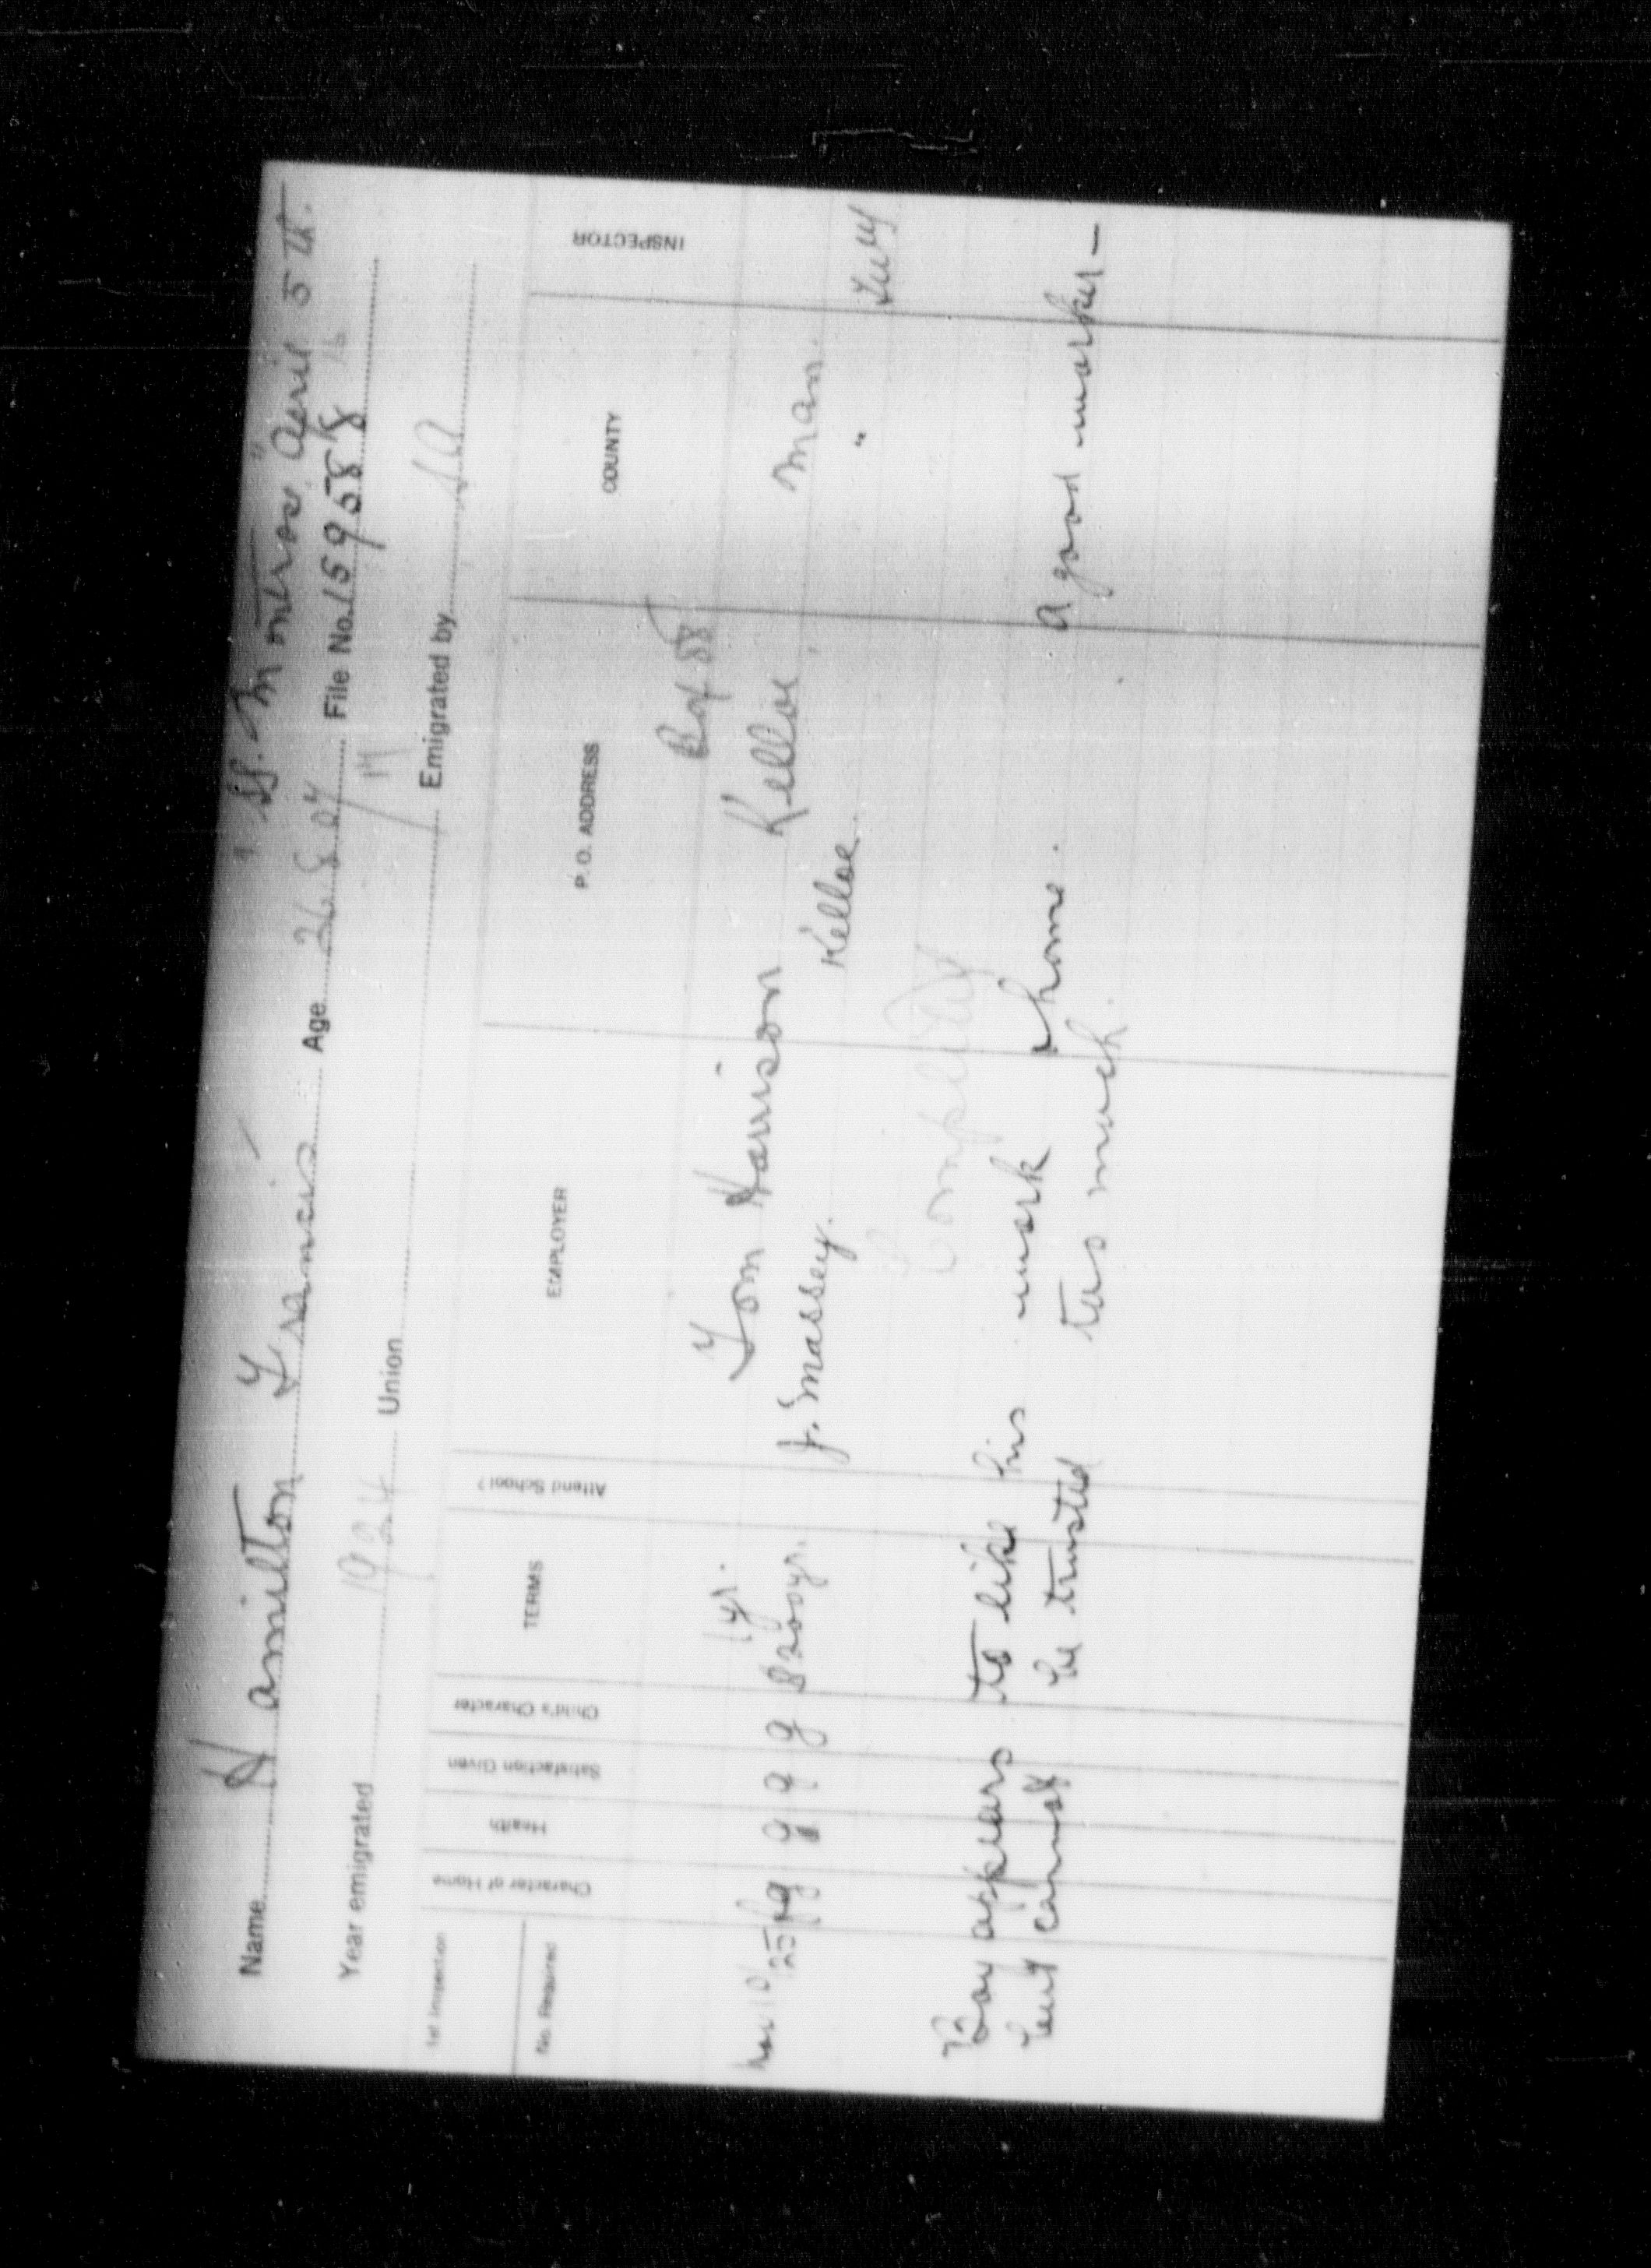 SS. "Montrose" April 5th.
Name Hamilton Francis Age 26.8.07 File No. 159588
16
17
Year emigrated 1924 Union Emigrated by S.A.
1st Inspection
No. Required Character of Home Health Satisfaction Given Child's Character TERMS Attend School? EMPLOYER P.O. ADDRESS COUNTY INSPECTOR
Box 58
1 yr. Tom Harrison Kelloe Man.
Nov 10/25 fg g g g $200 yr. J. Massey. Kelloe. "
Completed
Boy appears to like his work & home. A good worker -
but cannot be trusted too much.